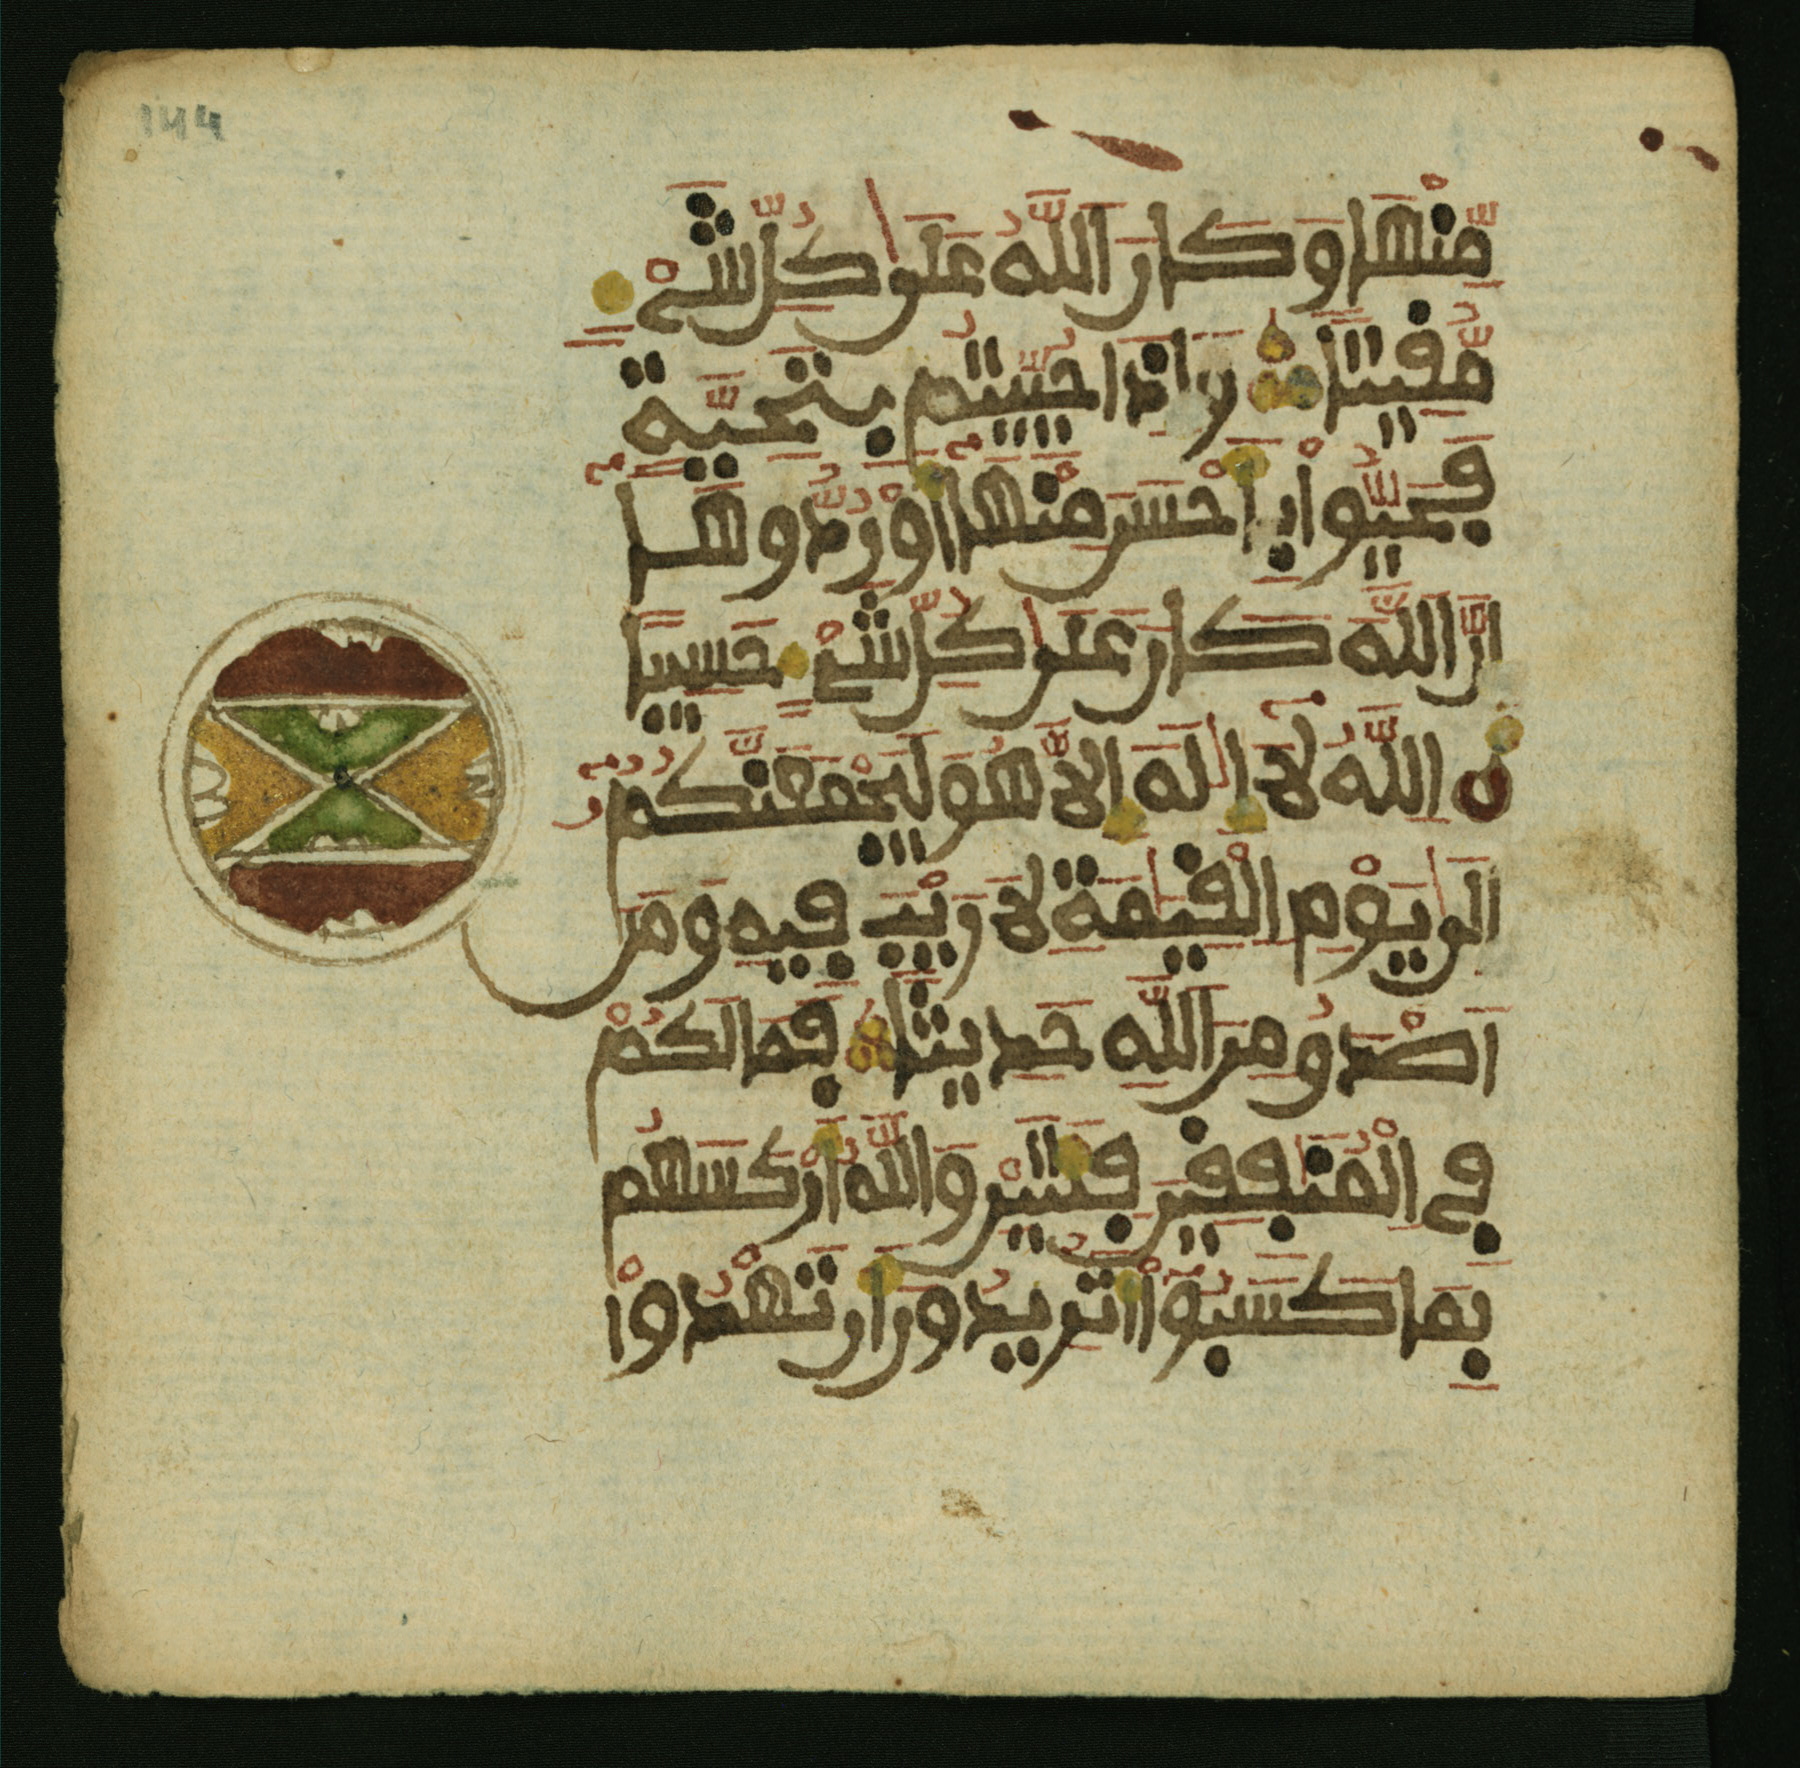 144
مِّنْهَا وَكَانَ اللَّهُ عَلَى كُلِّ شَيْءٍ
مُّقِيتًا وَإِذَا حُيِّيتُم بِتَحِيَّةٍ
فَحَيُّواْ بِأَحْسَنَ مِنْهَا أَوْ رُدُّوهَا
إِنَّ اللَّهَ كَانَ عَلَى كُلِّ شَيْءٍ حَسِيبًا
اللَّهُ لَا إِلَهَ إِلَّا هُوَ لَيَجْمَعَنَّكُمُ
إِلَى يَوْمِ الْقِيَمَةِ لَا رَيْبَ فِيهِ وَمَنَ
اَصْدَقُ مِنَ اللَّهِ حَدِيثًا فَمَا لَكُمْ
فِي الْمُنَفِقِينَ فِئَتَيْنِ وَاللَّهُ أَرْكَسَهُم
بِمَا كَسَبُواْ أَتُرِيدُونَ أَن تَهْدُواْ